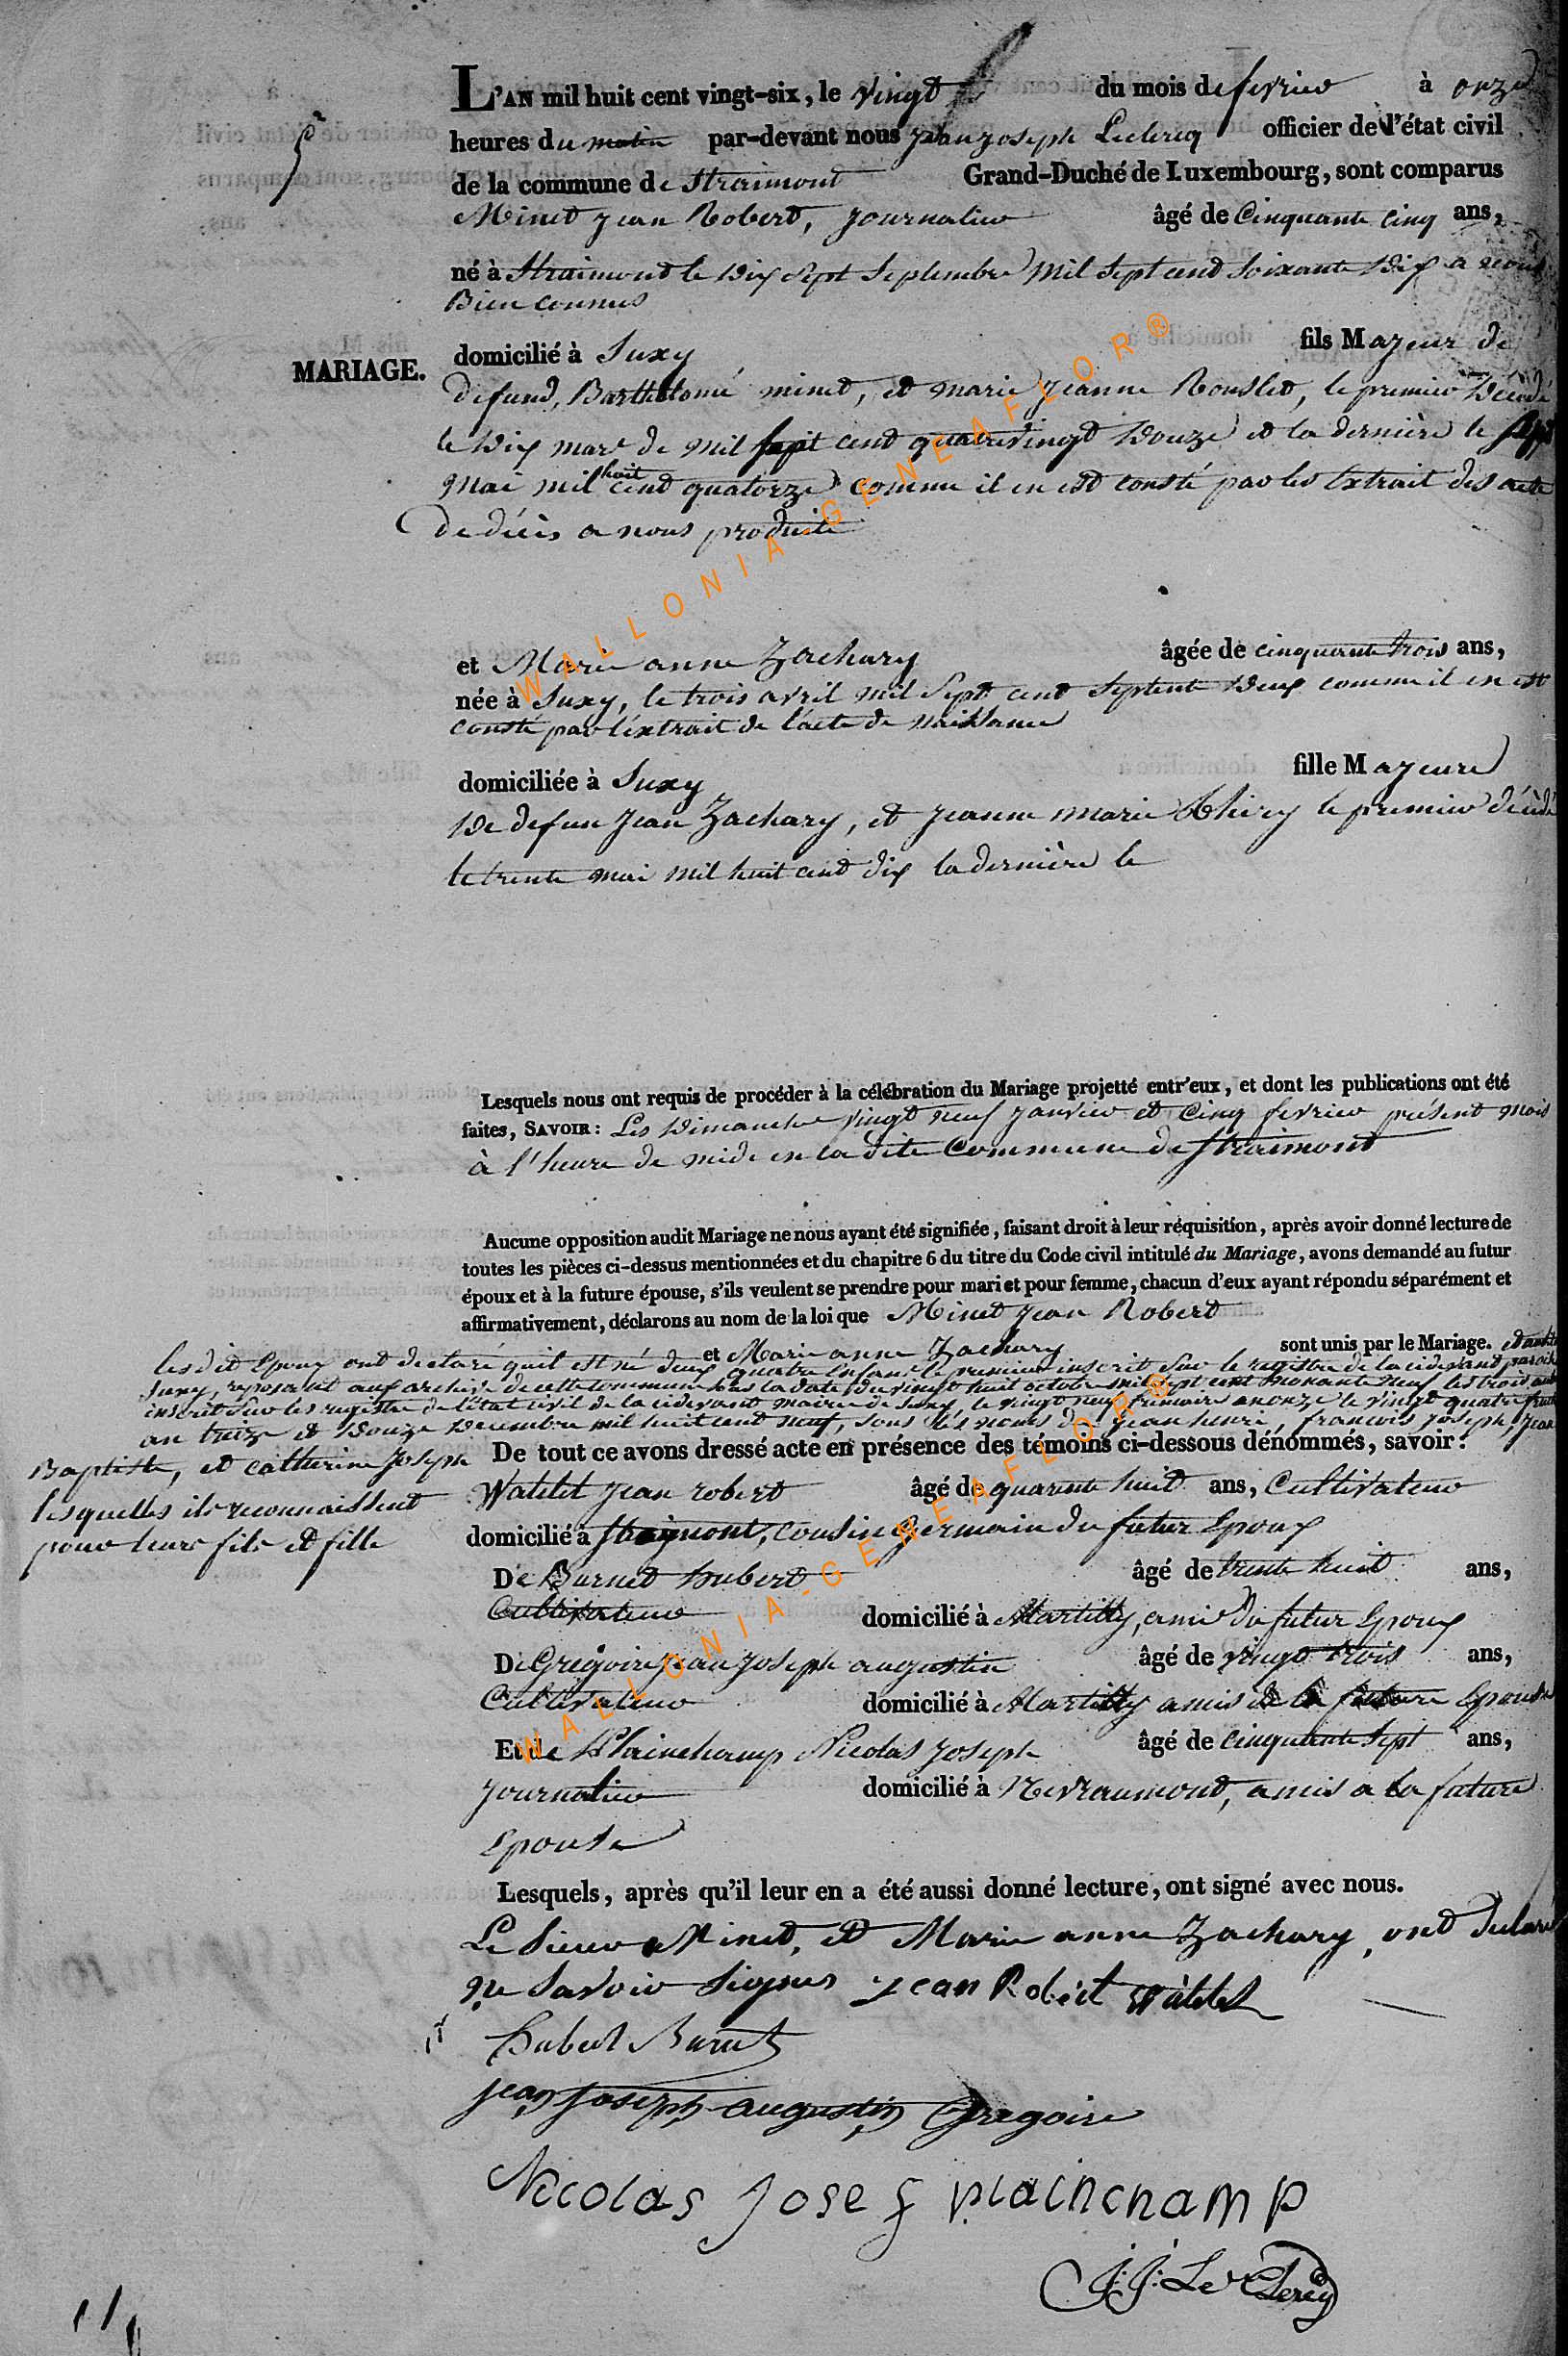 L'AN mil huit cent vingt-six, le vingt du mois de fevrier à onze
5
heures du matin par-devant nous jean joseph Leclercq officier de l'état civil
de la commune de Straimont Grand-Duché de Luxembourg, sont comparus
Minet jean Robert, journalier âgé de Cinquante cinq ans,
né à Straimont le Dix Sept Septembre Mil Sept cent Soixante Dix a nous
Bien connus
MARIAGE.
domicilié à Suxy fils Majeur de
defunt, Barthelomé minet, et marie jeanne Rouslet, le premier Décédé
le Dix mars de mil sept cent quatrevingt Douze et la dernière le
mai mil huit cent quatorze comme il en est consté par les Extrait des acte
de décès a nous produite
et Marie anne Zachary âgée de cinquante trois ans,
née à Suxy, le trois avril mil Sept cent Septente Deux comme il en est
consté par l'extrait de l'acte de naissance
domiciliée à Suxy fille Majeure
De defun jean Zachary, et jeanne marie thiry le premier décédé
le trente mai mil huit cent dix la dernière le
Lesquels nous ont requis de procéder à la célébration du Mariage projetté entr'eux, et dont les publications ont été
faites, SAVOIR: Les Dimanche vingt neuf janvier et Cinq fevrier présent mois
à l'heure de midi en la dite Commune de Straimont
Aucune opposition audit Mariage ne nous ayant été signifiée, faisant droit à leur réquisition, après avoir donné lecture de
toutes les pièces ci-dessus mentionnées et du chapitre 6 du titre du Code civil intitulé du Mariage, avons demandé au futur
époux et à la future épouse, s'ils veulent se prendre pour mari et pour femme, chacun d'eux ayant répondu séparément et
affirmativement, déclarons au nom de la loi que Minet jean Robert
et Marie anne Zachary sont unis par le Mariage.
lesdit Epoux ont declaré quil est né deux quatre Enfant le premier inscrit Sur le registre de la cidevant paroisse
Suxy, reposant aux archive de cette commune sous la date du vingt huit octobre mil sept cent nonante neuf les trois autre
inscrit Sur les registre de l'état civil de la cidevant mairie de Suxy, le vingt neuf frimaire an onze le vingt quatre
an treize et Douze Decembre mil huit cent neuf, sous les noms de jean henri, francois joseph, jean
Baptiste, et catherine Joseph
lesquelles ils reconnaissent
pour leurs fils et fille
De tout ce avons dressé acte en présence des témoins ci-dessous dénommés, savoir:
Watelet jean robert âgé de quarente huit ans, Cultivateur
domicilié à Straimont, cousin germain du futur Epoux
De Burnet hubert âgé de trente huit ans,
Cultivateur domicilié à Martilly, ami du futur Epoux
De Gregoire jean joseph augustin âgé de vingt trois ans,
Cultivateur domicilié à Martilly amis de la future Epouse
Et de Plainchamp Nicolas joseph âgé de cinquante Sept ans,
journalier domicilié à Nevraumont, amis a la future
Epouse
Lesquels, après qu'il leur en a été aussi donné lecture, ont signé avec nous.
Le Sieur Minet, et Marie anne Zachary, ont declaré
ne Savoir Signer jean Robert Watelet
hubert Burnet
jean joseph augustin Gregoire
Nicolas Josef plainchamp
J: J: Le Clercq
WALLONIA-GENEAFLOR®
WALLONIA-GENEAFLOR®